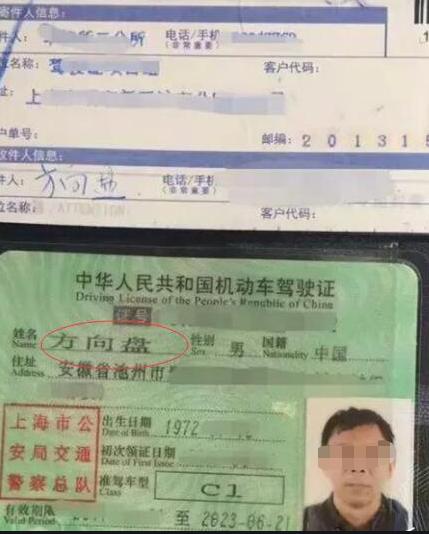 寄件人信息:
件人:
电话/手机
(非常重要)
位名称:
客户代码:
址: 上
户单号:
邮编: 201315
收件人信息:
件人: 方向盘
电话/手机
(非常重要)
位名称:
客户代码:
中华人民共和国机动车驾驶证
Driving License of the People's Republic of China
证号
姓名 方向盘 性别 男 国籍 中国
Name Sex Nationality
住址 安徽省池州市
Address
上海市公
安局交通
警察总队
出生日期 1972
Date of Birth
初次领证日期
Date of First Issue
准驾车型 C1
Class
有效期限 至 2023-06-21
Valid Period